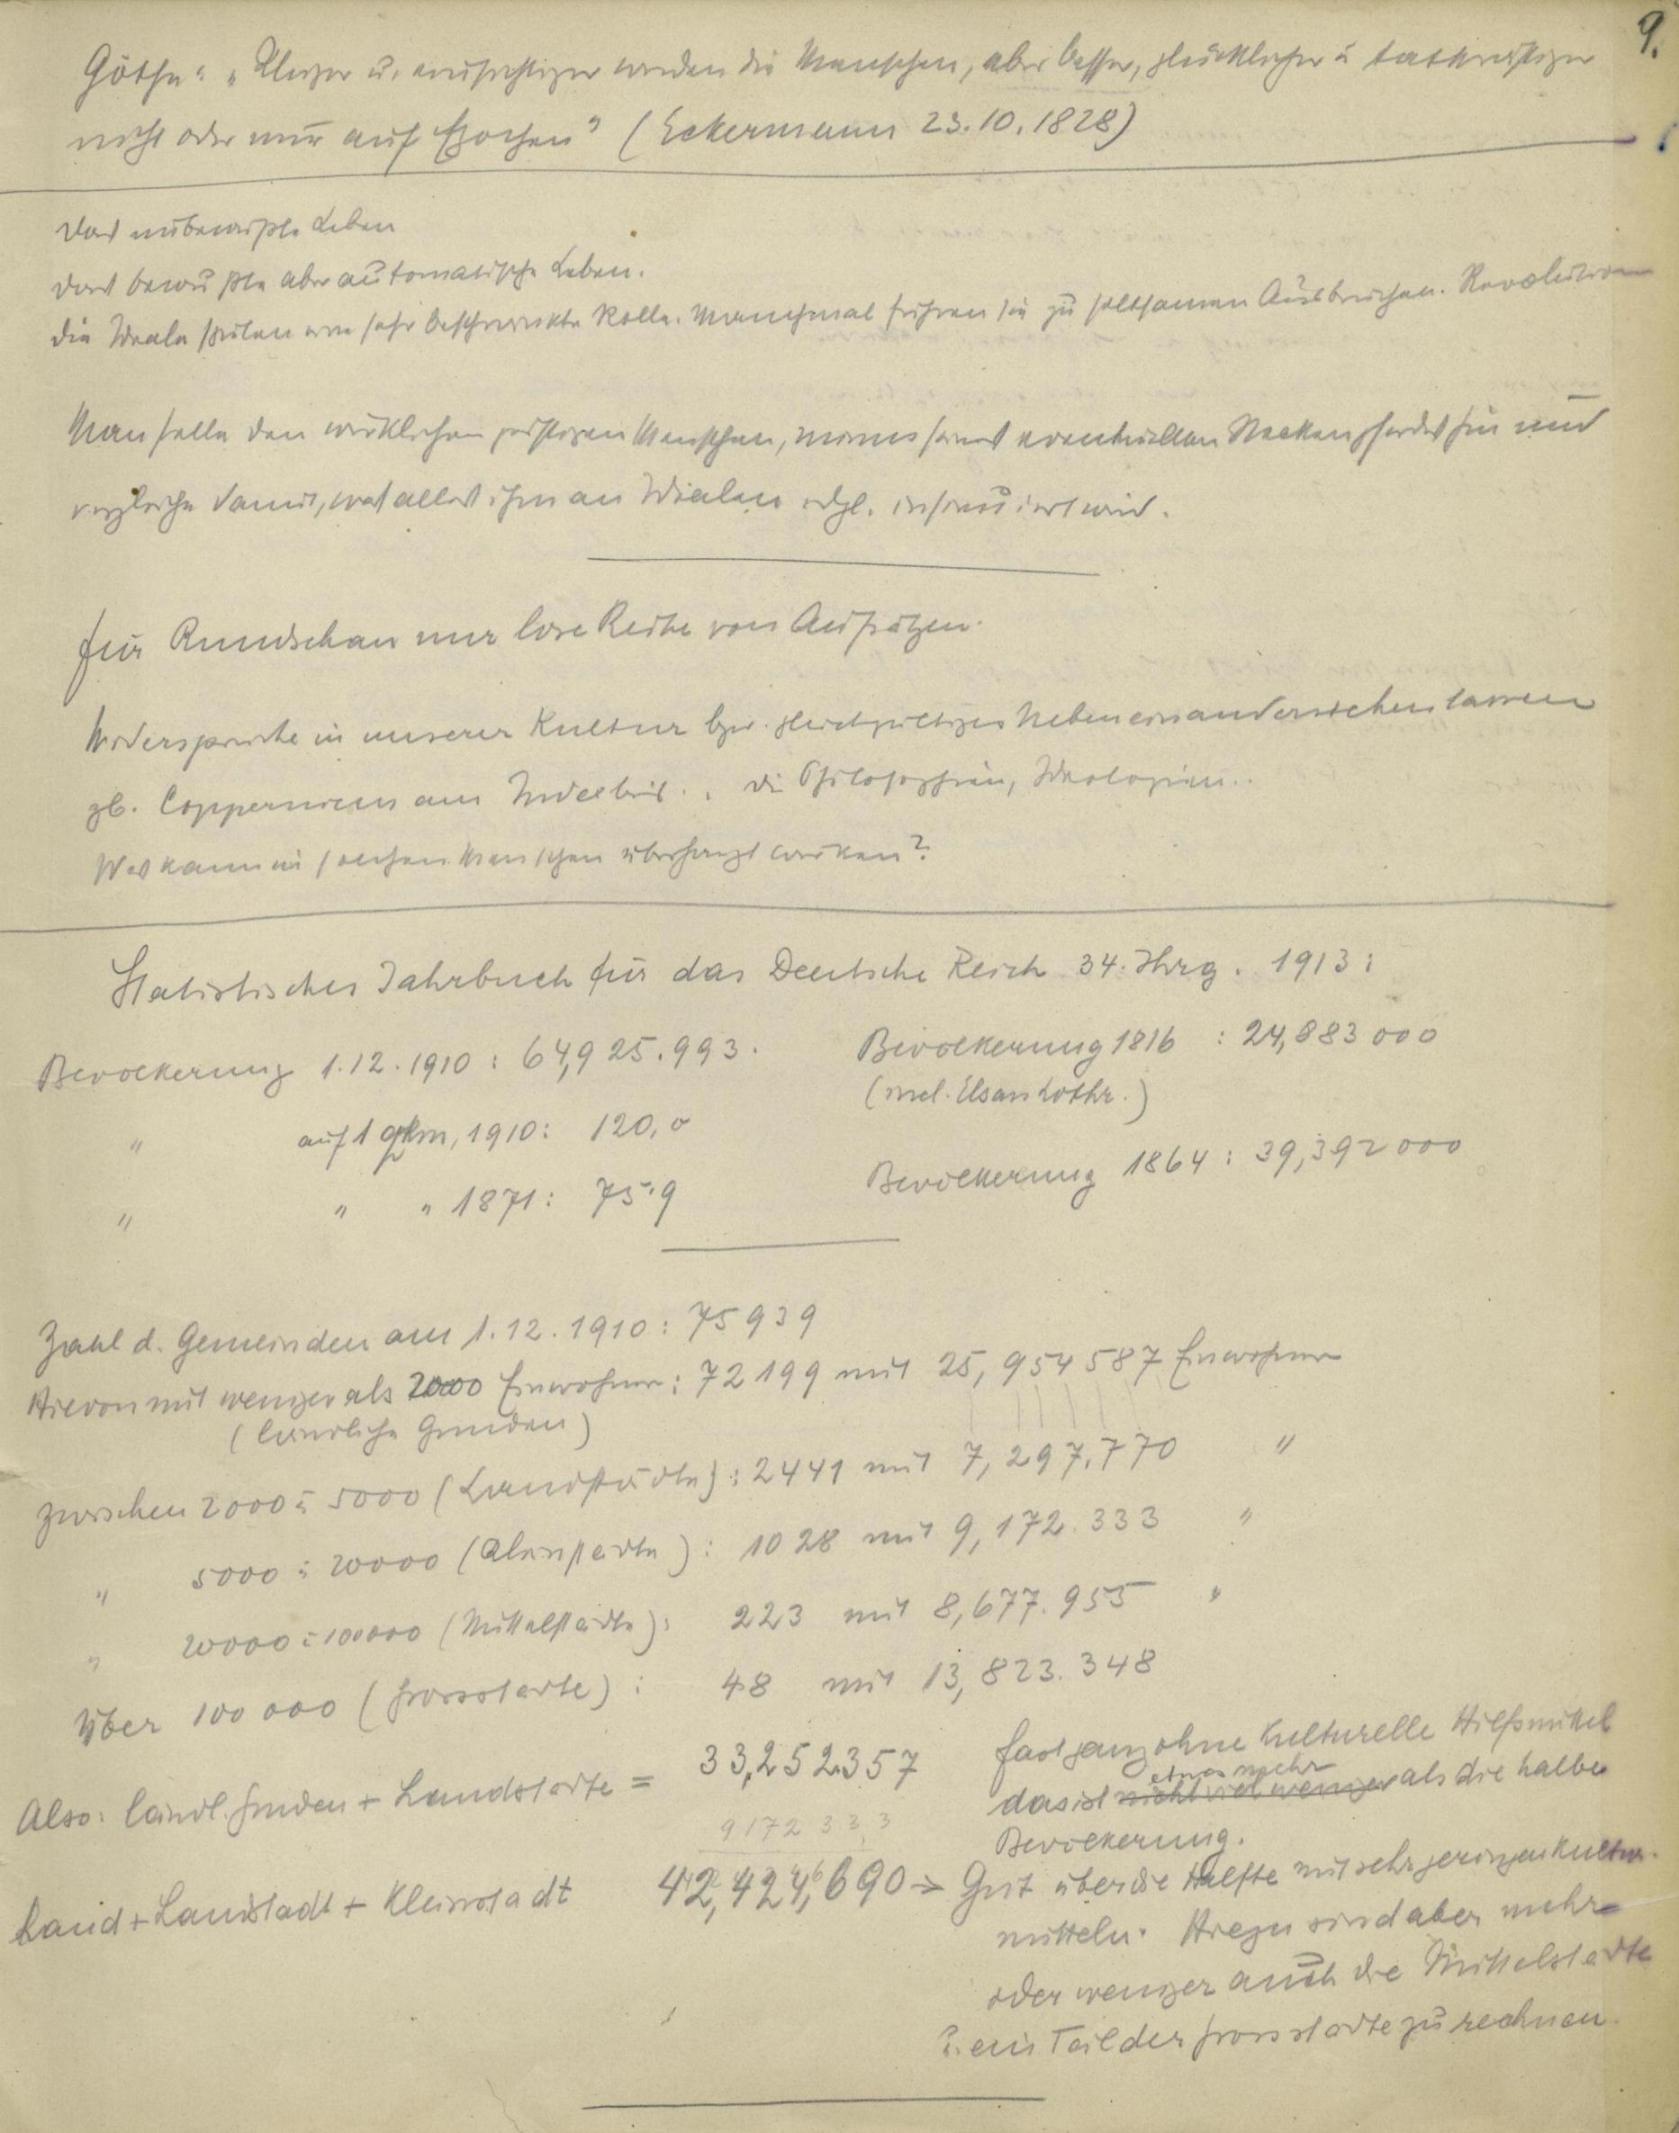 9.
Göthe: „Klüger u. einsichtiger werden die Menschen, aber besser, glücklicher u tatkräftiger
nicht oder nur auf Epochen" (Eckermann 23.10.1828)
Das unbewußte Leben
Das bewußte aber automatische Leben.
Die Ideale spielen eine sehr beschränkte Rolle. Manchmal führen sie zu seltsamen Ausbrüchen. Revolutionen
Man stelle den wirklichen geistigen Menschen, minus seines eventuellen Steckenpferdes hin und
vergleiche damit, was alles ihm an Idealen udgl. insinuiert wird.
Für Rundschau nur lose Reihe von Aufsätzen.
Widersprüche in unserer Kultur bzw. gleichgültiges Nebeneinanderstehenlassen
zb. Coppernicus am . die Philosophien, Ideologien..
Was kann in solchen Menschen überhaupt wirken?
Statistisches Jahrbuch für das Deutsche Reich 34. Jhrg. 1913:
Bevölkerung 1.12.1910: 64,925.993.
" auf 1 qkm, 1910: 120,0
" " " 1871: 75.9
Bevölkerung 1816 : 24,883 000
(incl. Elsass Lothr.)
Bevölkerung 1864: 39,392 000
Zahl d. Gemeinden am 1.12.1910: 75939
Hievon mit weniger als 2000 Einwohner: 72199 mit 25,954587 Einwohner
(ländliche Gmeinden)
zwischen 2000 u 5000 (Landstädte): 2441 mit 7,297.770 "
" 5000 u 20000 (Kleinstädte): 1028 mit 9,172.333 "
" 20000 u 100000 (Mittelstädte): 223 mit 8,677.955 "
Über 100 000 (Grossstädte): 48 mit 13,823.348
Also: ländl. Gmden + Landstädte = 33,252.357
fast ganz ohne kulturelle Hilfsmittel
etwas mehr
das ist nicht viel weniger als die halbe
Bevölkerung.
9172333
Land + Landstadt + Kleinstadt 42,424,690 → Gut über die Hälfte mit sehr geringen Kultur-
mitteln. Hiezu sind aber mehr
oder weniger auch die Mittelstädte
u. ein Teil der Grossstädte zu rechnen.